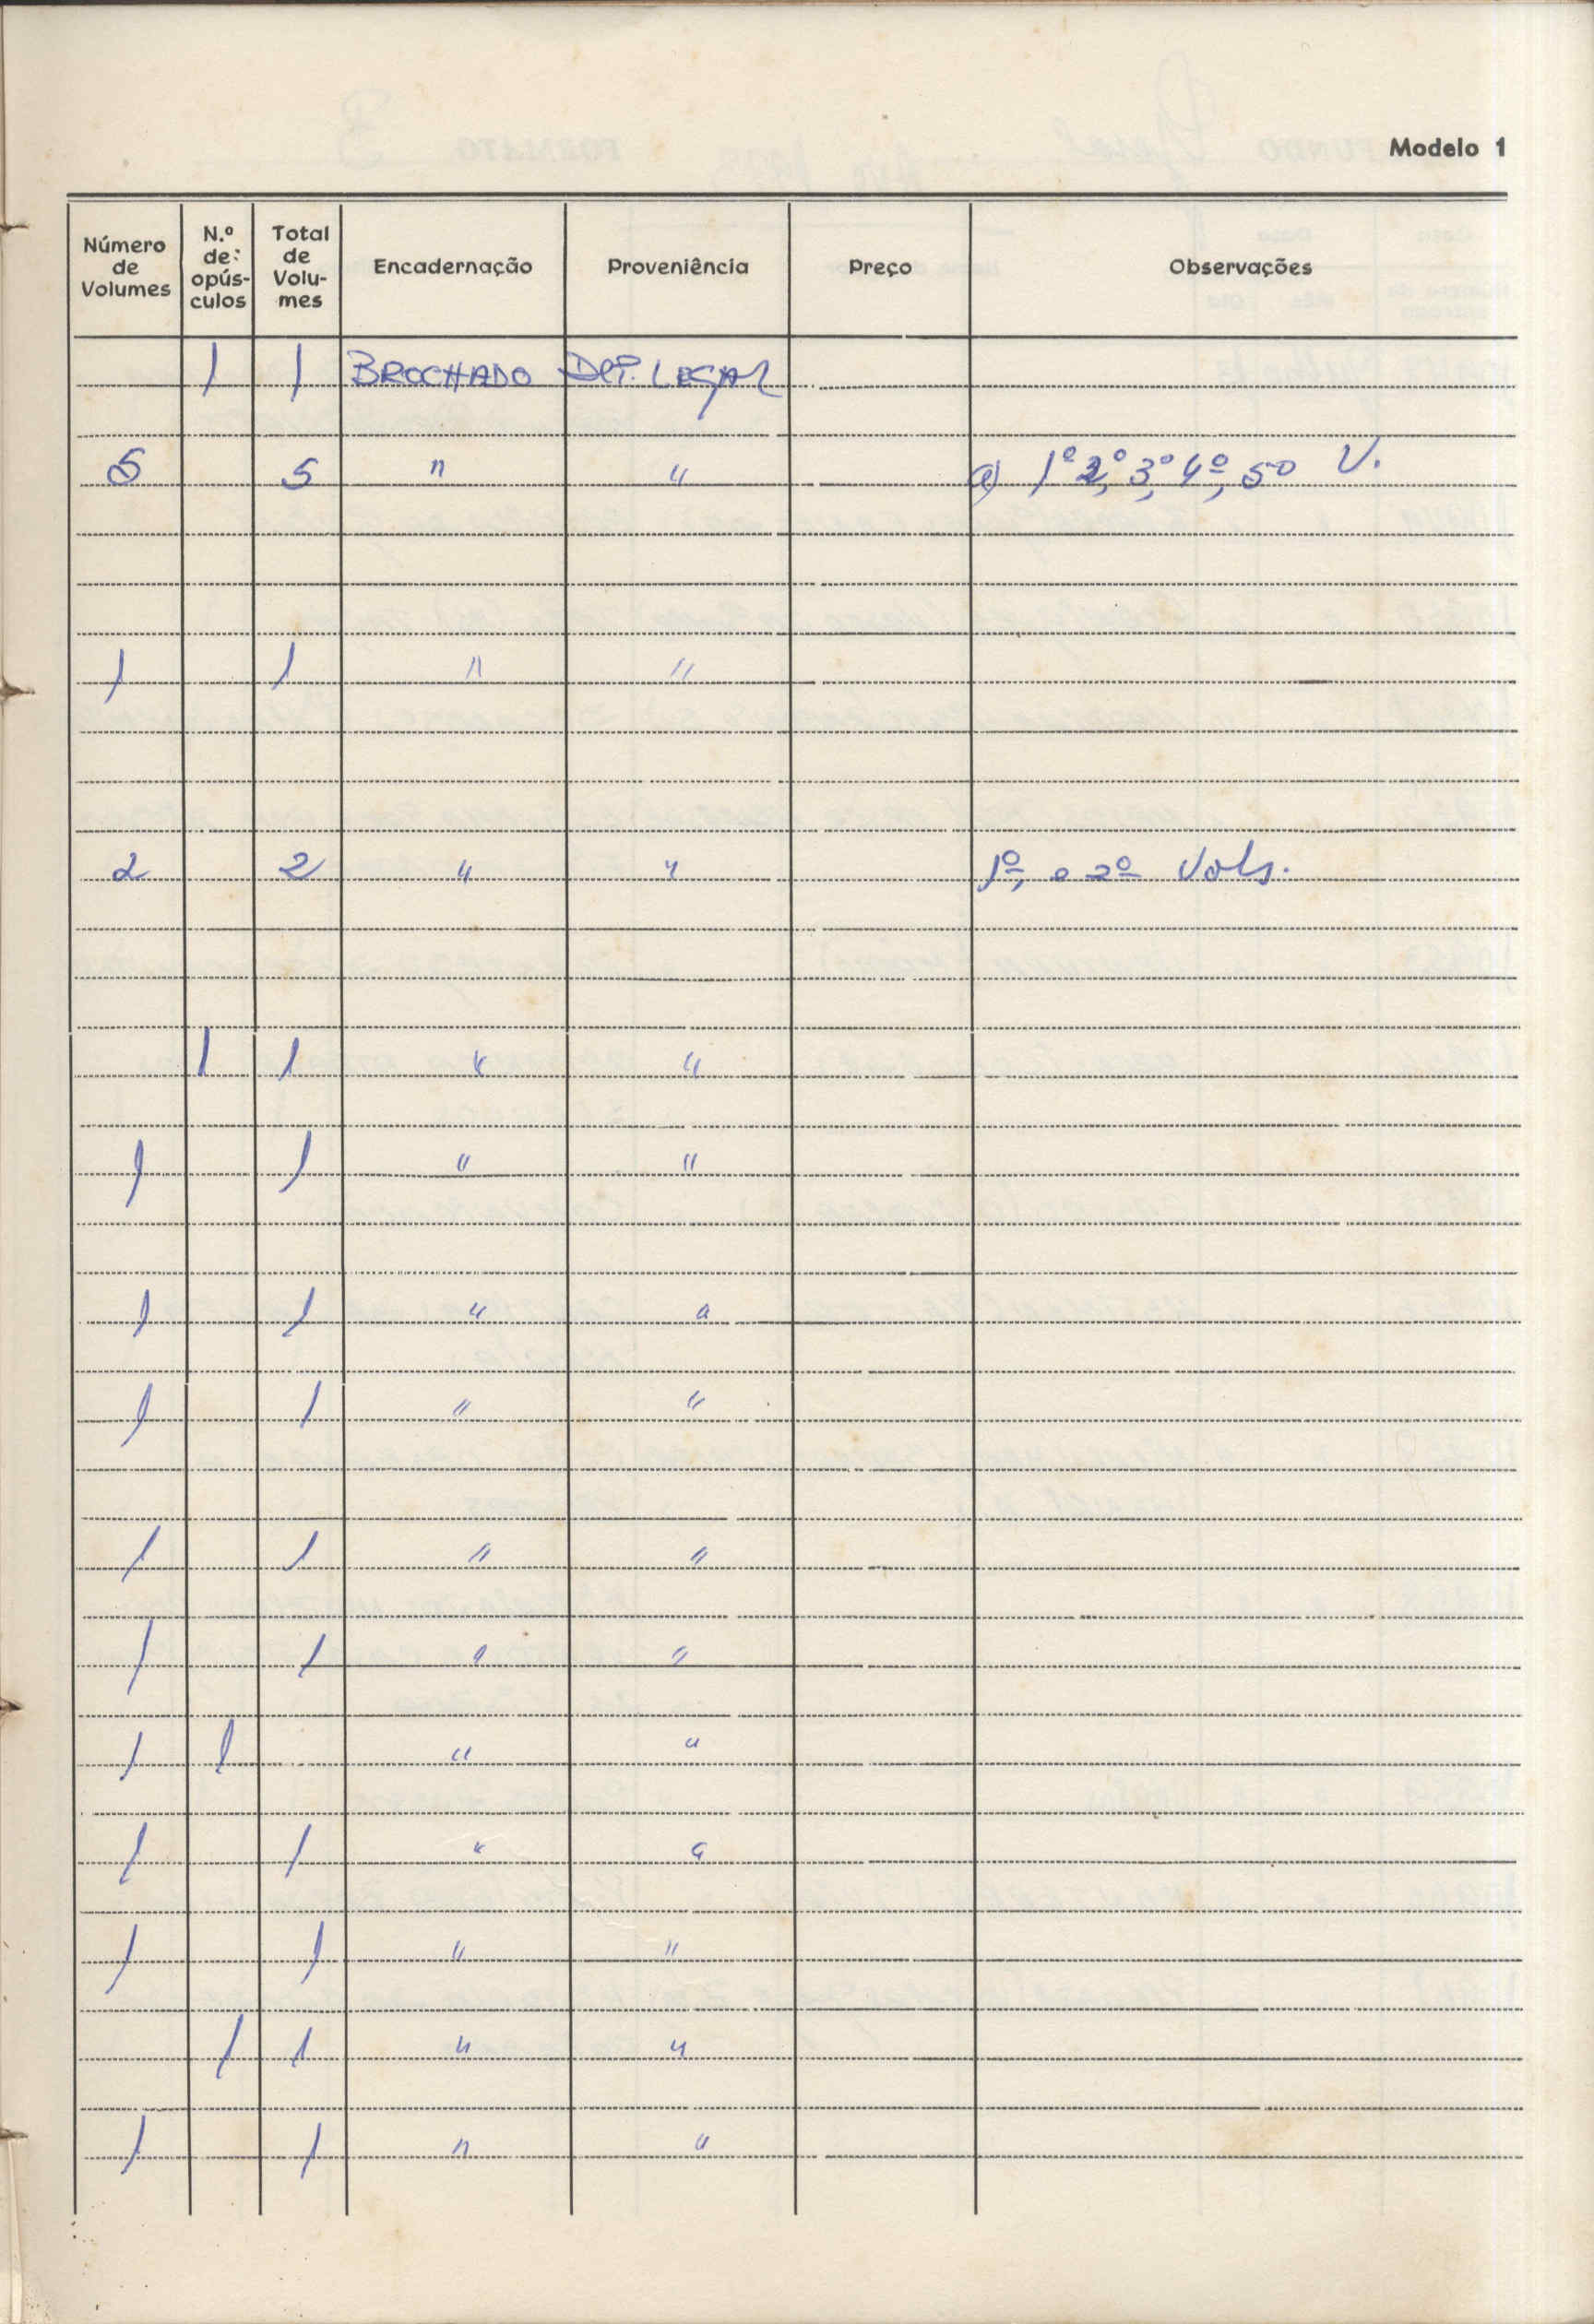 Modelo 1
Número de Volumes | N.º de: opús-culos | Total de Volu-mes | Encadernação | Proveniência | Preço | Observações
1 1 BROCHADO DEP. LEGAL
5 5 " " a) 1º 2º, 3º, 4º, 5º V.
1 1 " "
2 2 " " 1º, e 2º Vols.
1 1 " "
1 1 " "
1 1 " "
1 1 " "
1 1 " "
1 1 " "
1 1 " "
1 1 " "
1 1 " "
1 1 " "
1 1 " "